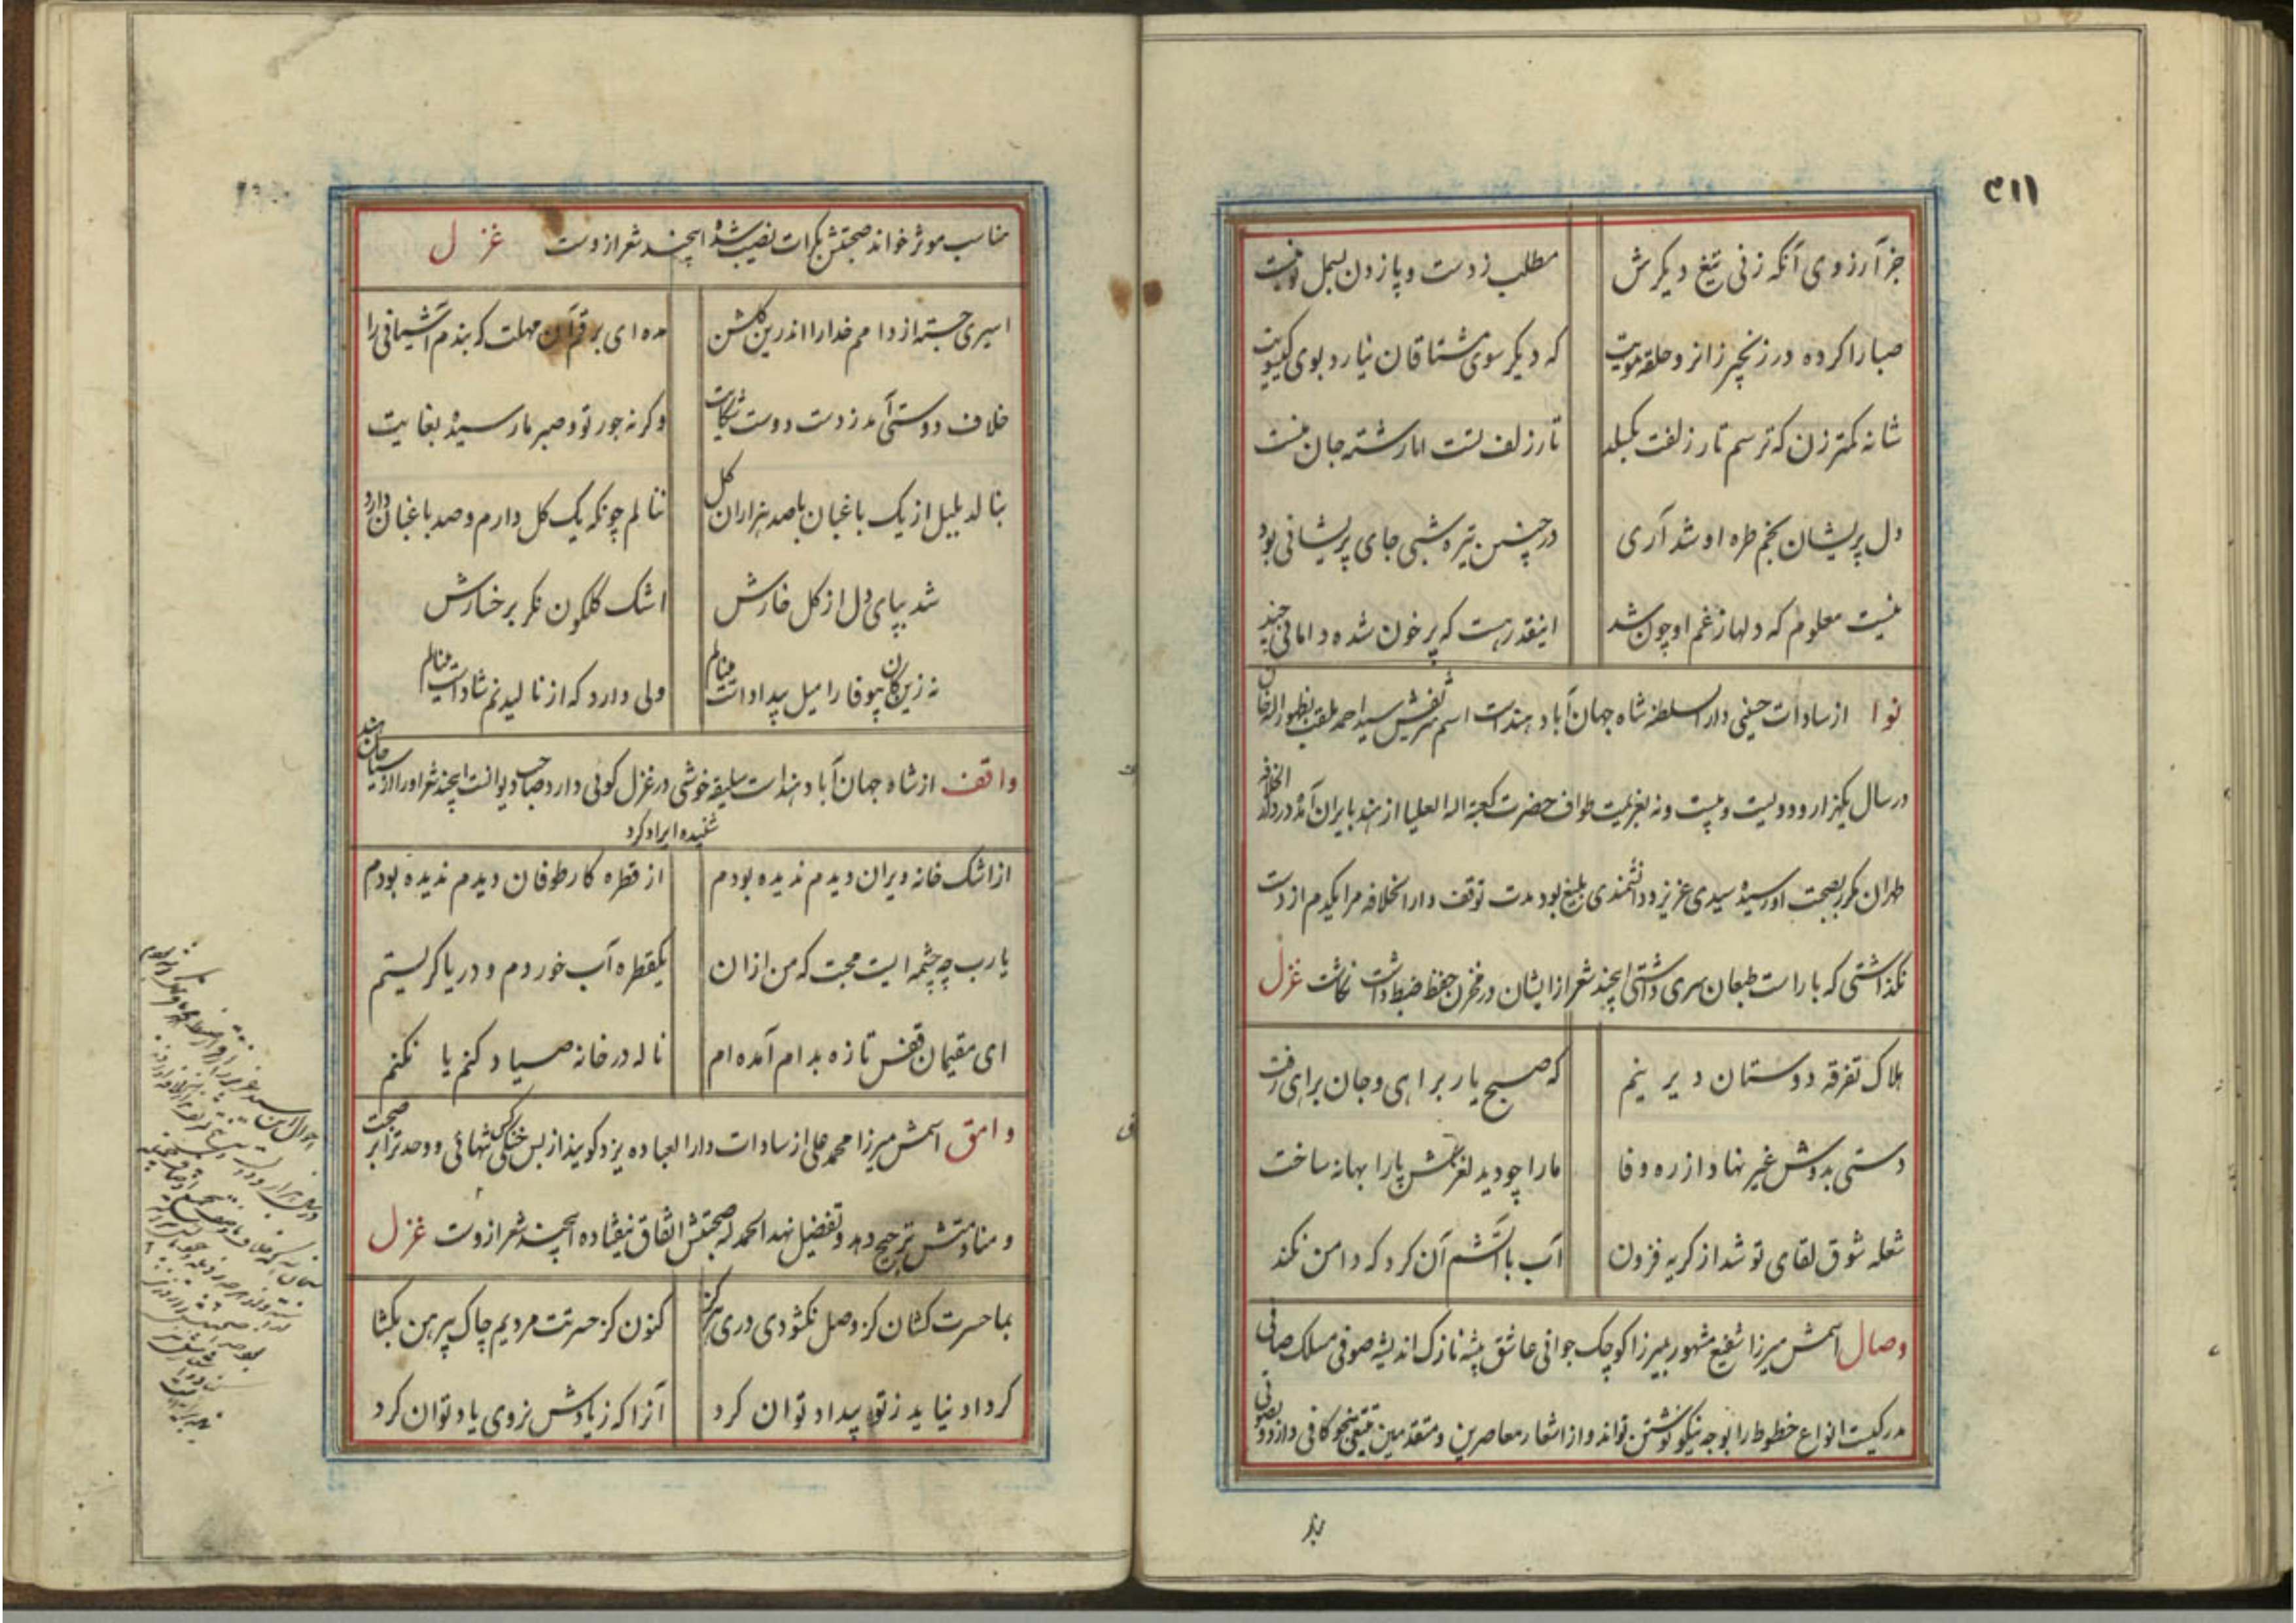 ۴۱۱
جز آرزوی آنکه زنی تیغ دیکرش مطلب ز دست و پا زدن بسمل تو نیست
صبا را کرده در زنجیر زانرو حلقه مویت که دیکر سوی مشتاقان نیارد بوی کیسویت
شانه کمتر زن که ترسم تار زلفت بکسلد تار زلف تست اما رشته جان منست
دل پریشان بخم طره او شد آری در چنین تیره شبی جای پریشانی بود
نیست معلوم که دلها ز غم او چون شد اینقدر هست که پر خون شده دامانی چند
نوا از سادات حنفی دار السلطنه شاه جهان آباد هند است اسم شریفش سید احمد ملقب بظهور الله خان
در سال یکهزار و دویست و بیست و نه بعزیمت طواف حضرت کعبة الله العلیا از هند بایران آمده در دار الخلافه
طهران مکرر بصحبت او رسیده سیدی عزیز و دانشمندی بلیغ بود مدت توقف دار الخلافه مرا یکدم از دست
نکذاشتی که با راست طبعان سری داشتی اینچند شعر از ایشان در مخزن حفظ ضبط داشت نکاشت غزل
هلاک تفرقه دوستان دیرینم که صبح یار براهی و جان براهی رفت
دستی بدوش غیر نهاد از ره وفا ما را چو دید لغزش پا را بهانه ساخت
شعله شوق لقای تو شد از کریه فزون آب با آتشم آن کرد که دامن نکند
وصال اسمش میرزا شفیع مشهور بمیرزا کوچک جوانی عاشق پیشه نازک اندیشه صوفی مسلک صافی
مدرکیست انواع خطوط را بوجه نیکو نوشتن تواند و از اشعار معاصرین و متقدمین تتبعی بنحو کافی دارد و بصوتی
مناسب موثر خواند صحبتش بکرات نصیب شده اینچند شعر از وست غزل
اسیری جسته از دامم خدا را اندرین کلشن مده ای برق آن مهلت که بندم آشیانی را
خلاف دوستی آمد ز دست دوست شکایت وکرنه جور تو و صبر ما رسیده بغایت
بنالد بلبل از یک باغبان با صد هزاران کل ننالم چونکه یک کل دارم و صد باغبان دارد
شد بپای دل از کل خارش اشک کلکون نکر برخسارش
نه زین کان بیوفا را میل بیداد است مینالم ولی دارد که از نالیدنم شاد است مینالم
واقف از شاه جهان آباد هند است سلیقه خوشی در غزل کوئی دارد صاحب دیوانست اینچند شعر او را از سیاحان هند
شنیده ایراد کرد
از اشک خانه ویران دیدم ندیده بودم از قطره کار طوفان دیدم ندیده بودم
یا رب چه چشمه ایست محبت که من ازان یکقطره آب خوردم و دریا کریستم
ای مقیمان قفس تازه بدام آمده ام ناله در خانه صیاد کنم یا نکنم
وامق اسمش میرزا محمد علی از سادات دار العباده یزد کویند از بس خشکی تنهائی و وحدت را بر صحبت
و منادمتش ترجیح دهد و تفضیل نهد الحمد لله صحبتش اتفاق نیفتاده اینچند شعر از وست غزل
بما حسرت کشان کز وصل نکشودی دری هرکز کنون کز حسرتت مردیم چاک پیرهن بکشا
کر داد نیاید ز تو بیداد توان کرد آنرا که ز یادش نروی یاد توان کرد